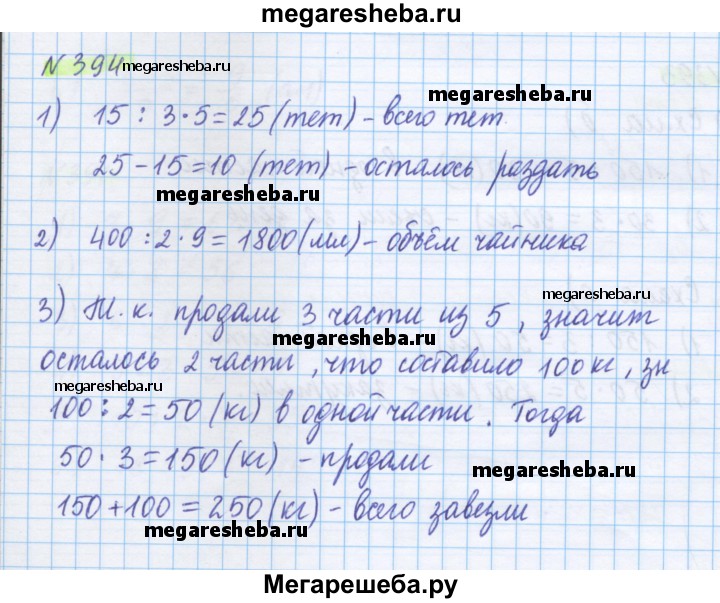 megaresheba.ru
N 394 megaresheba.ru
megaresheba.ru
1) 15 : 3 · 5 = 25 (тет) - всего тет.
25 - 15 = 10 (тет) - осталось раздать
megaresheba.ru
2) 400 : 2 · 9 = 1800 (мл) - объём чайника
megaresheba.ru
megaresheba.ru
3) Т.к. продали 3 части из 5, значит
megaresheba.ru
осталось 2 части, что составило 100 кг, зн
megaresheba.ru
100 : 2 = 50 (кг) в одной части. Тогда
50 · 3 = 150 (кг) - продали
megaresheba.ru
150 + 100 = 250 (кг) - всего завезли
megaresheba.ru
Мегарешеба.ру